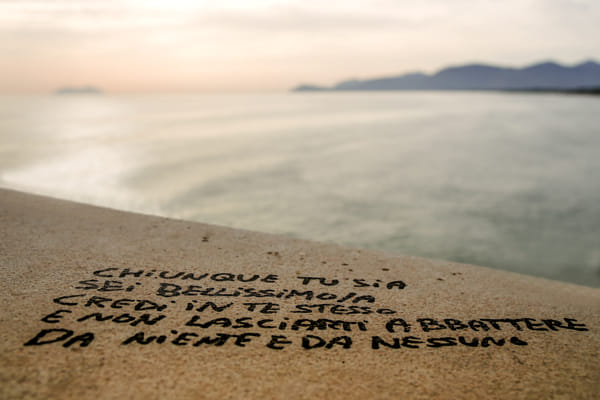 CHIUNQUE TU SIA
SEI BELLISSIMO/A
CREDI IN TE STESSO
E NON LASCIARTI ABBATTERE
DA NIENTE E DA NESSUNO